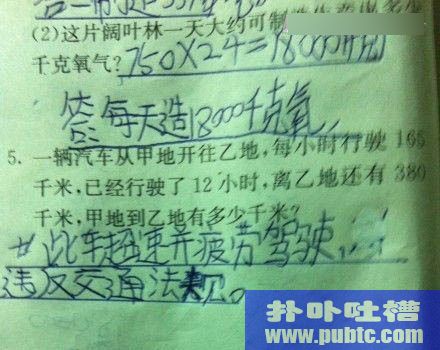 (2)这片阔叶林一天大约可制造出多少
千克氧气?750×24=18000(千克)
答每天造18000千克氧
5. 一辆汽车从甲地开往乙地,每小时行驶 165
千米,已经行驶了 12 小时,离乙地还有 380
千米,甲地到乙地有多少千米?
此车超速并疲劳驾驶
违反交通法规。
扑扑吐槽
www.pubtc.com